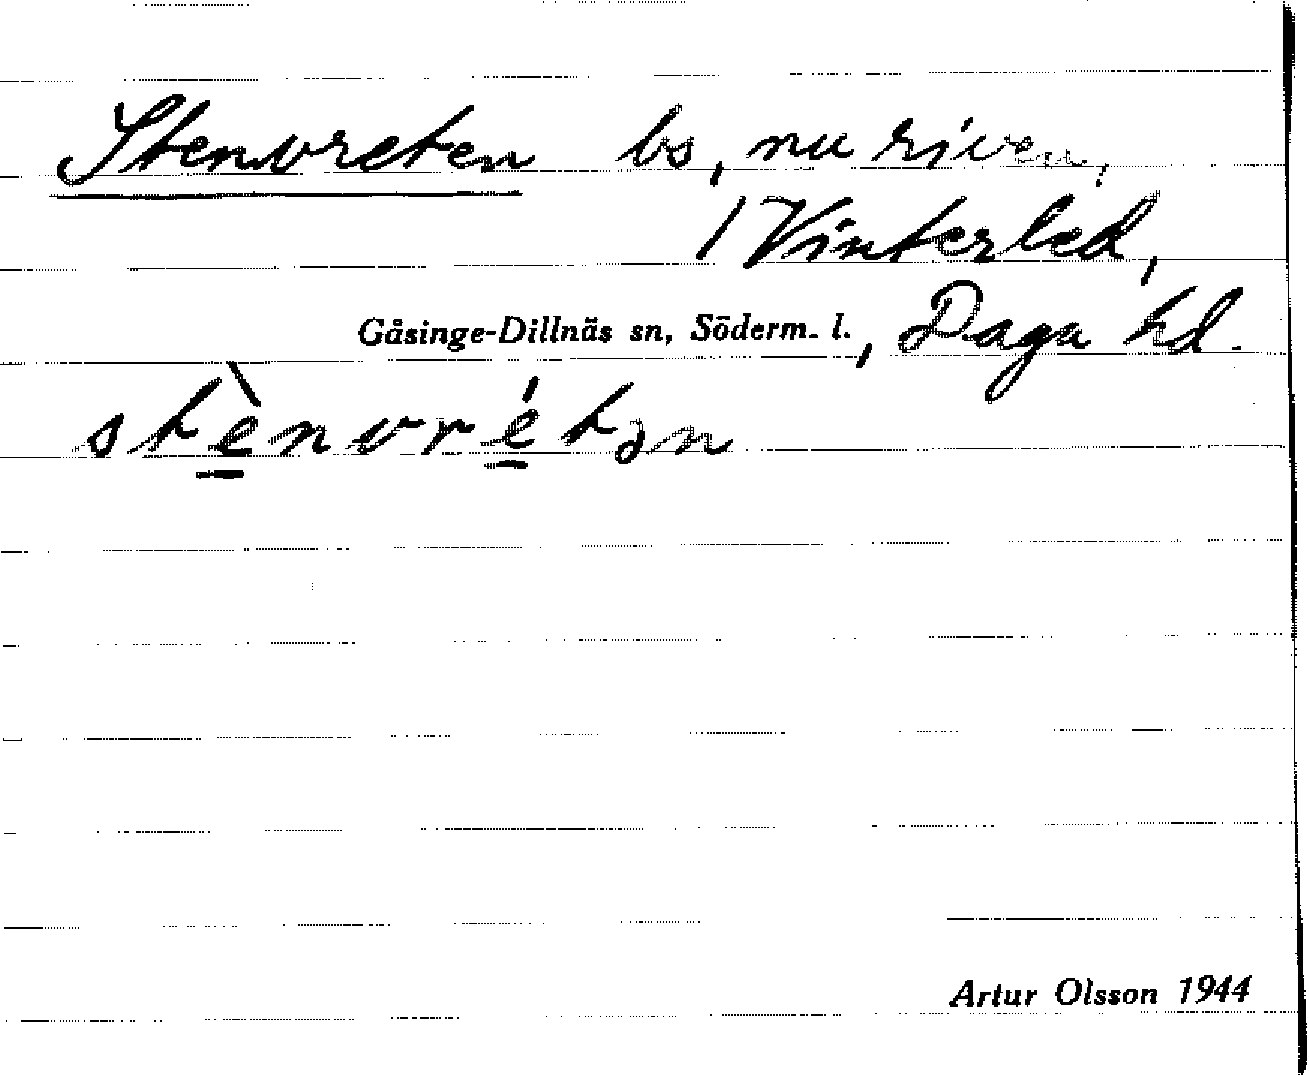 Stenvreten bs, nu riven,
/ Vinterled,
Gåsinge-Dillnäs sn, Söderm. l., Daga hd.
stènvrétən
Artur Olsson 1944